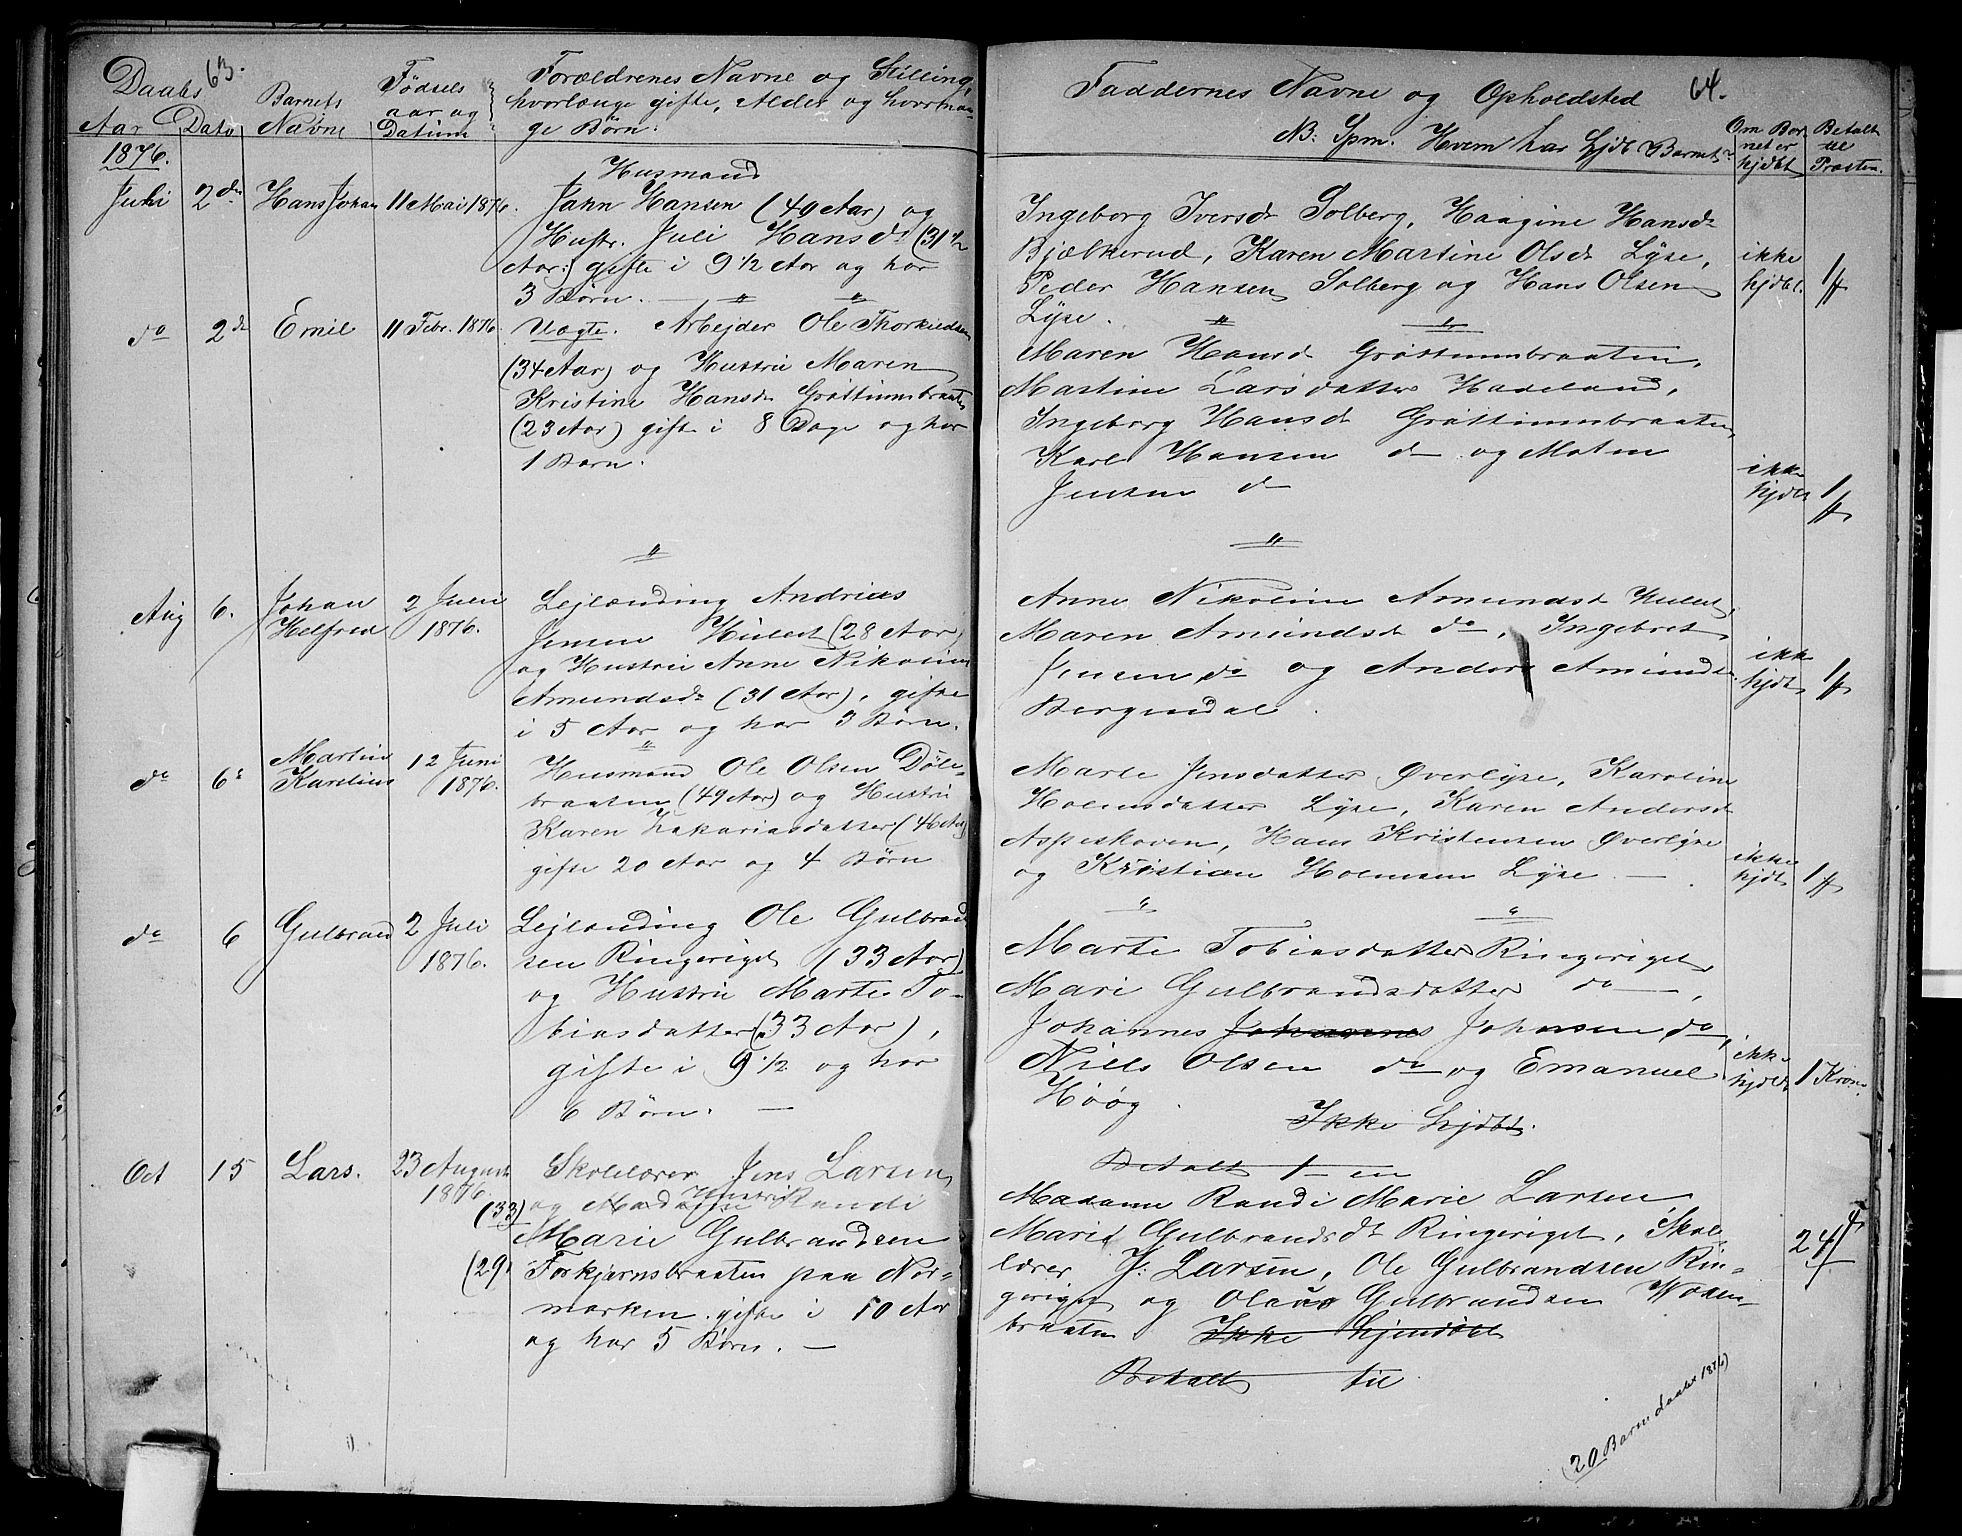 63.
Daabs
Aar Dato
Barnets Navne
Fødsels aar og Datum
Forældrenes Navne og Stilling,
hvorlænge gifte, Alder og hvorman-
ge Børn:
1876.
Juli 2den Hans Johan 11 Mai 1876.
Husmand
Jahn Hansen (40 Aar) og
Hustr. Juli Hansd (31 1/2
Aar) gifte i 9 1/2 Aar og har
3 Børn.
do 2d Emil 11 Febr. 1876.
Uægte. Arbejder Ole Thorkildsen
(34 Aar) og Hustru Maren
Kristine Hansd Grøttumsbraaten
(23 Aar) gifte i 8 Dage og har
1 Barn.
Aug 6. Johan Helfred 2 Juli 1876.
Lejlænding Andreas
Jensen (28 Aar)
og Hustru Anne Nikoline
Amundsd (31 Aar), gifte
i 5 Aar og har 3 Børn.
do 6 Martin Karelius 12 Juni 1876.
Husmand Ole Olsen Døle-
braaten (49 Aar) og Hustru
Karen Zakariasdatter (46 Aar)
gifte 20 Aar og 4 Børn
do 6 Gulbrand 2 Juli 1876.
Lejlænding Ole Gulbrand
sen Ringeriget (33 Aar)
og Hustru Marte To-
biasdatter (33 Aar),
gifte i 9 1/2 og har
6 Børn. —
Oct 15 Lars. 23 August 1876
Skolelærer Jens Larsen
(33) og Madame Hustru Randi
Marie Gulbrandsen
(29) Forkjærnsbraaten paa Nor-
marken. gifte i 10 Aar
og har 5 Børn. —
64.
Faddernes Navne og Opholdsted
NB: Spm. Hvem har hjdbt Barnet?
Om Bar
net er
hjdbt
Betalt
til
Præsten.
Ingeborg Iversdr Solberg, Haagine Hansdr
Bjælkerud, Karen Martine Olsdr Lyse,
Peder Hansen Solberg og Hans Olsen
Lyse.
ikke
hjdbt.
Maren Hansd Grøttumsbraaten,
Martine Larsdatter Hadeland,
Ingeborg Hansd Grøttumsbraaten,
Karl Hansen do og
Jensen do
ikke
hjdbt
Anne Nikoline Amundsd
Maren Amundsd do, Ingebret
Jensen do og Anders Amunds
Bergendal.
ikke
hjdbt
Marte Jensdatter Øverlyse, Karoline
Holmsdatter Lyse, Karen Andersd
Aspeskoven, Hans Kristensen Øverlyse
og Kristian Holmsen Lyse. —
ikke
hjdbt
Marte Tobiasdatter Ringeriget,
Mari Gulbrandsdatter do —,
Johannes Johannes Johnsen do,
Niels Olsen do og Emanuel
Høøg.
ikke
hjdbt 1 Krone
Ikke hjdbt.
Betalt 1 — en
Madame Randi Marie Larsen
Marie Gulbrandsdt Ringeriget, Skol
lærer J: Larsen, Ole Gulbrandsen Rin-
geriget og Olaus Gulbrandsen
braaten Ikke hjemdbt
Betalt til
20 Børn daabt 1876)